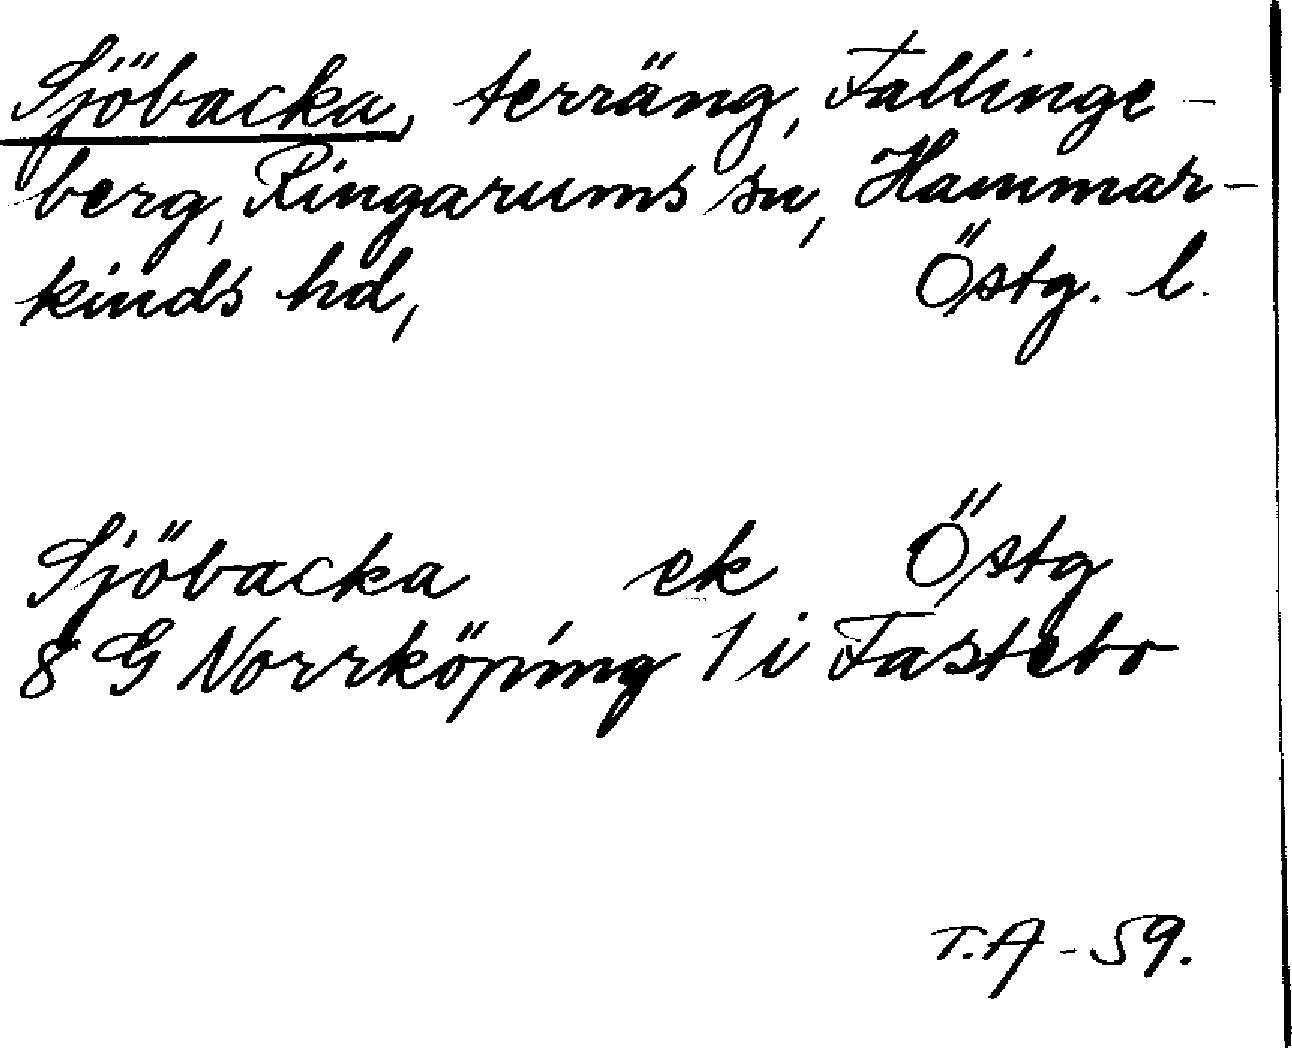 Sjöbacka, terräng, Fallinge-
berg, Ringarums sn, Hammar-
kinds hd, Östg. l.
Sjöbacka ek Östg
8 G Norrköping 1 i Fastebo
T.A - 59.